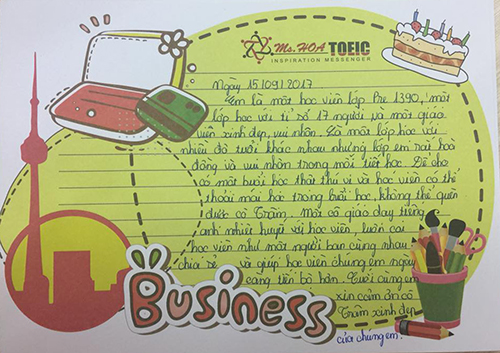 Ms. HOA TOEIC
INSPIRATION MESSENGER
Ngày 15/09/2017
Em là một học viên lớp Pre 1390, một
lớp học với tỉ số 17 người và một giáo
viên xinh đẹp, vui nhộn. Là một lớp học với
nhiều độ tuổi khác nhau nhưng lớp em rất hòa
đồng và vui nhộn trong mỗi tiết học. Để cho
có một buổi học thật thú vị và học viên có thể
thoải mái học trong buổi học, không thể quên
được cô Trâm. Một cô giáo dạy tiếng
anh nhiệt huyết với học viên, luôn coi
học viên như một người bạn cùng nhau
chia sẻ và giúp học viên chúng em ngày
càng tiến bộ hơn. Cuối cùng em
xin cảm ơn cô
Trâm xinh đẹp
của chúng em.
Business